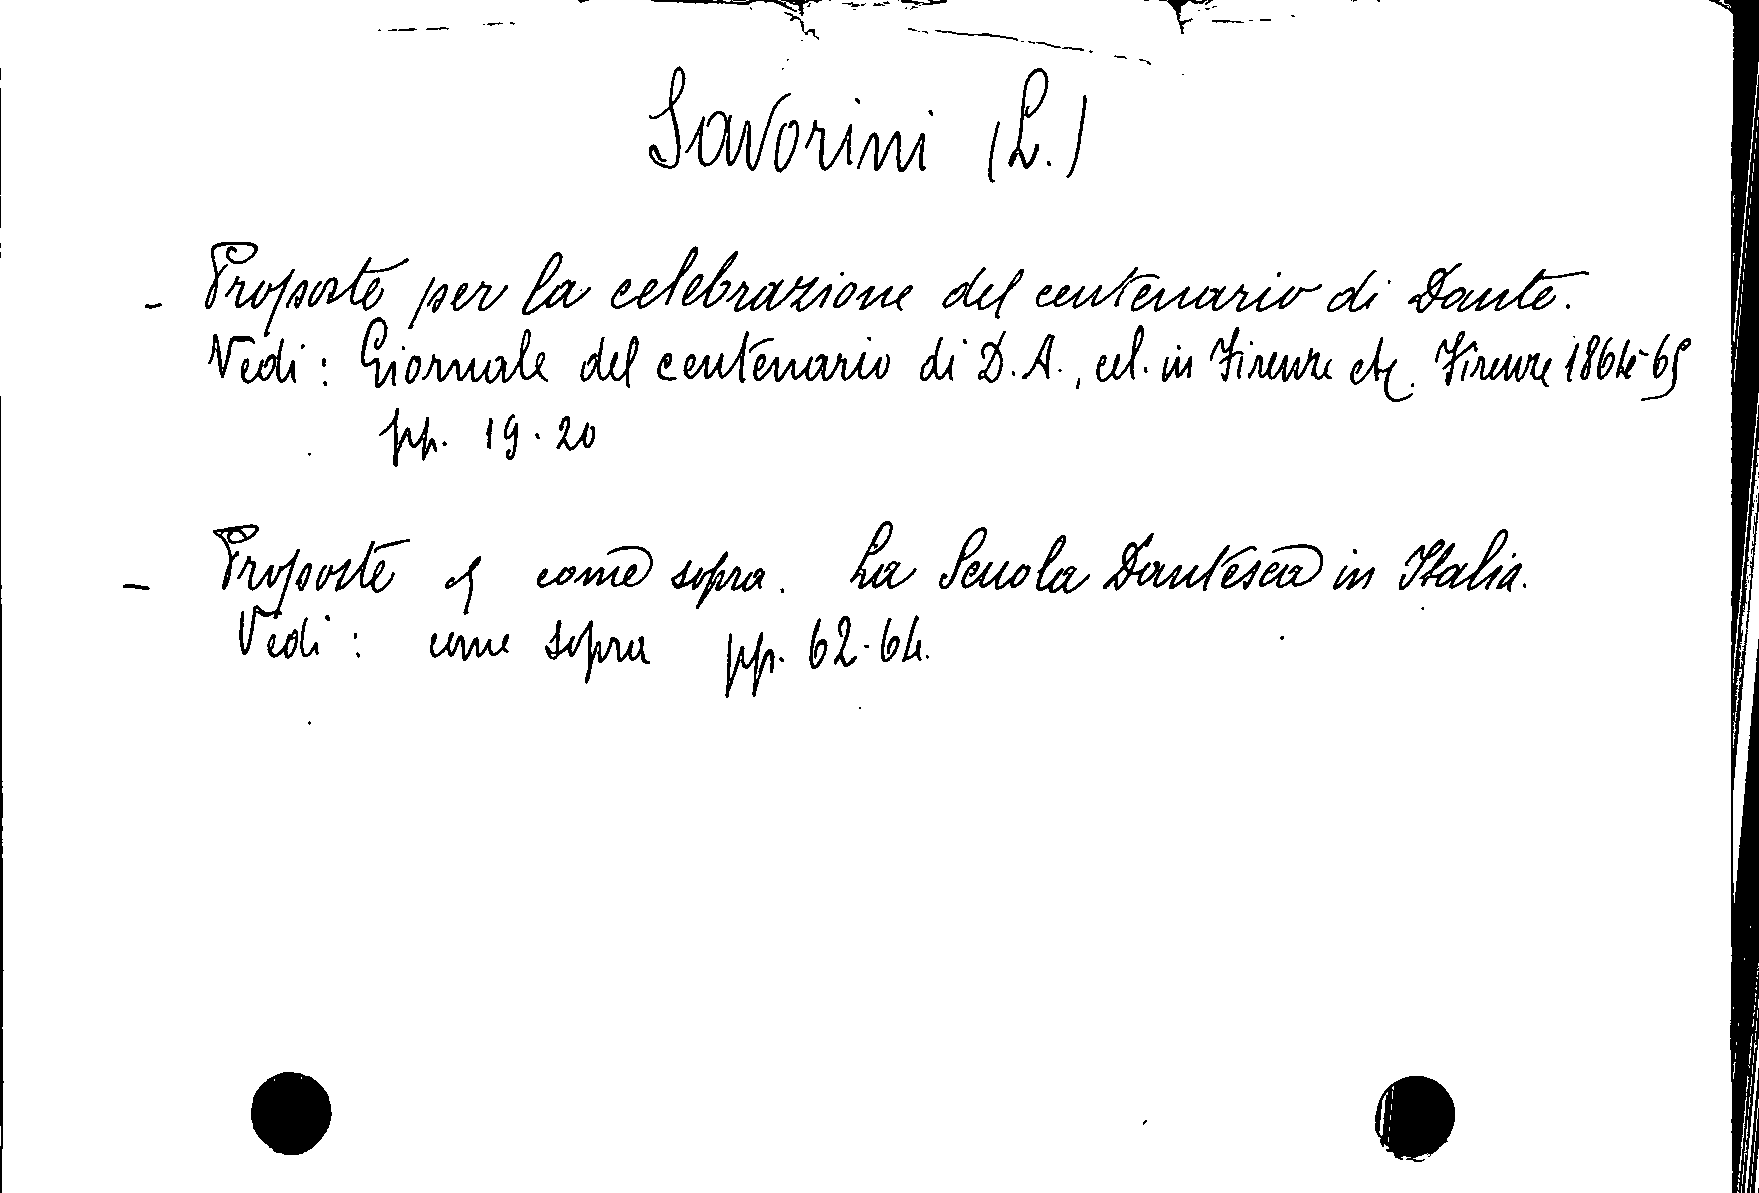 Savorini (L.)
- Proposte per la celebrazione del centenario di Dante.
Vedi: Giornale del centenario di D. A., cel. in Firenze etc. Firenze 1864-65
pp. 19-20
- Proposte come sopra. La Scuola Dantesca in Italia.
Vedi: come sopra pp. 62-64.